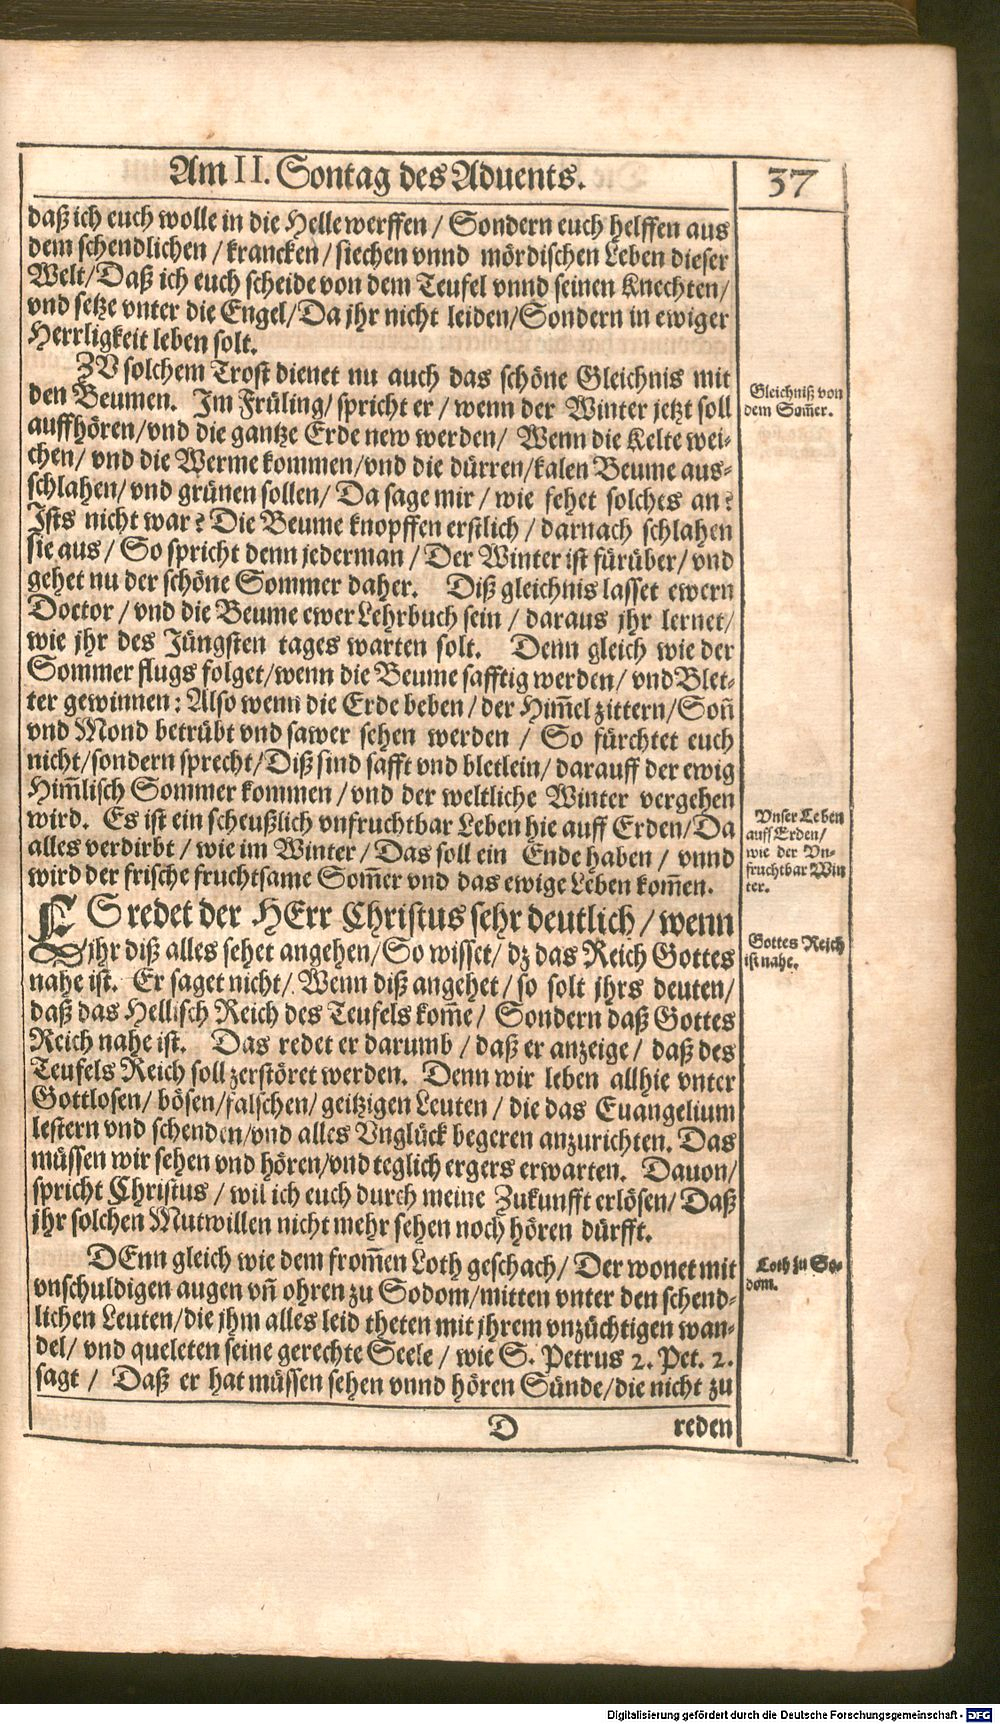 Am II. Sontag des Aduents.
37
daß ich euch wolle in die Helle werffen / Sondern euch helffen aus
dem schendlichen / krancken / siechen vnnd mördischen Leben dieser
Welt / Daß ich euch scheide von dem Teufel vnnd seinen Knechten /
vnd setze vnter die Engel / Da jhr nicht leiden / Sondern in ewiger
Herrligkeit leben solt.
ZV solchem Trost dienet nu auch das schöne Gleichnis mit
den Beumen. Im Früling / spricht er / wenn der Winter jetzt soll
auffhören / vnd die gantze Erde new werden / Wenn die Kelte wei-
chen / vnd die Werme kommen / vnd die dürren / kalen Beume aus-
schlahen / vnd grünen sollen / Da sage mir / wie fehet solches an?
Ists nicht war? Die Beume knopffen erstlich / darnach schlahen
sie aus / So spricht denn jederman / Der Winter ist fürüber / vnd
gehet nu der schöne Sommer daher. Diß gleichnis lasset ewern
Doctor / vnd die Beume ewer Lehrbuch sein / daraus jhr lernet /
wie jhr des Jüngsten tages warten solt. Denn gleich wie der
Sommer flugs folget / wenn die Beume safftig werden / vnd Blet-
ter gewinnen: Also wenn die Erde beben / der Him̃el zittern / Soñ
vnd Mond betrübt vnd sawer sehen werden / So fürchtet euch
nicht / sondern sprecht / Diß sind safft vnd bletlein / darauff der ewig
Him̃lisch Sommer kommen / vnd der weltliche Winter vergehen
wird. Es ist ein scheußlich vnfruchtbar Leben hie auff Erden / Da
alles verdirbt / wie im Winter / Das soll ein Ende haben / vnnd
wird der frische fruchtsame Som̃er vnd das ewige Leben kom̃en.
ES redet der HErr Christus sehr deutlich / wenn
jhr diß alles sehet angehen / So wisset / dz das Reich Gottes
nahe ist. Er saget nicht / Wenn diß angehet / so solt jhrs deuten /
daß das Hellisch Reich des Teufels kom̃e / Sondern daß Gottes
Reich nahe ist. Das redet er darumb / daß er anzeige / daß des
Teufels Reich soll zerstöret werden. Denn wir leben allhie vnter
Gottlosen / bösen / falschen / geitzigen Leuten / die das Euangelium
lestern vnd schenden / vnd alles Vnglück begeren anzurichten. Das
müssen wir sehen vnd hören / vnd teglich ergers erwarten. Dauon /
spricht Christus / wil ich euch durch meine Zukunfft erlösen / Daß
jhr solchen Mutwillen nicht mehr sehen noch hören dürfft.
DEnn gleich wie dem from̃en Loth geschach / Der wonet mit
vnschuldigen augen vñ ohren zu Sodom / mitten vnter den schend-
lichen Leuten / die jhm alles leid theten mit jhrem vnzüchtigen wan-
del / vnd queleten seine gerechte Seele / wie S. Petrus 2. Pet. 2.
sagt / Daß er hat müssen sehen vnnd hören Sünde / die nicht zu
D
reden
Gleichniß von
dem Som̃er.
Vnser Leben
auff Erden /
wie der Vn-
fruchtbar Win
ter.
Gottes Reich
ist nahe.
Loth zu So-
dom.
Digitalisierung gefördert durch die Deutsche Forschungsgemeinschaft - DFG